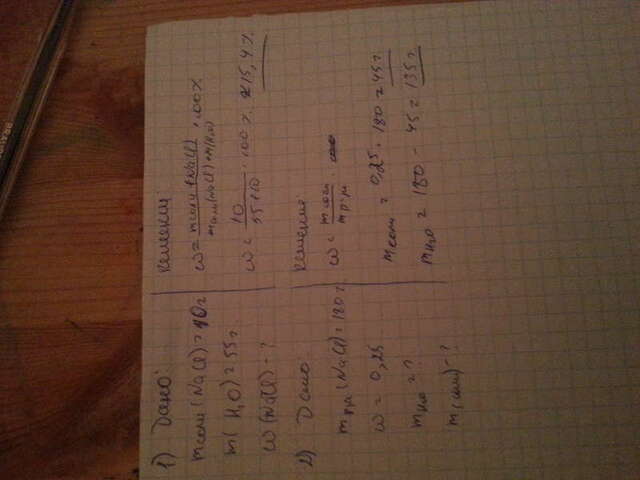 1) Дано:
m соли (NaCl) = 10 г
m(H2O) = 55 г
ω(NaCl) - ?
Решение:
ω = m соли (NaCl) / m соли (NaCl) + m(H2O) · 100%
ω = 10 / 55+10 · 100% ≈ 15,4%
2) Дано:
m р-ра (NaCl) = 180 г
ω = 0,25
m H2O = ?
m(соли) - ?
Решение:
ω = m соли / m р-ра
m соли = 0,25 · 180 = 45 г.
m H2O = 180 - 45 = 135 г